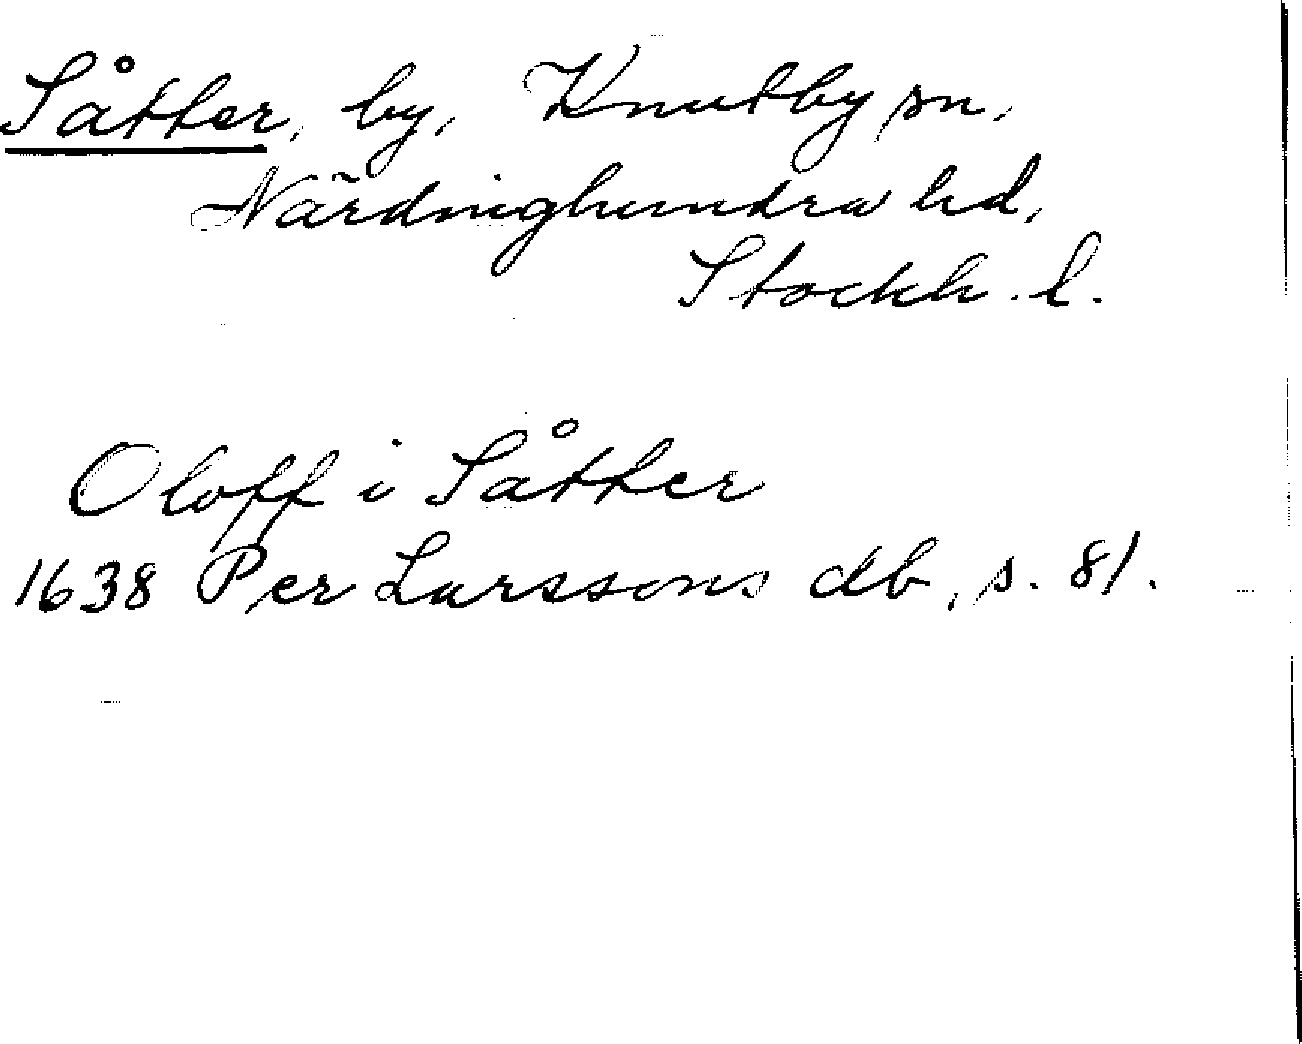 Såtter, by, Knutby sn,
Närdinghundra hd,
Stockh. l.
Oloff i Såtter
1638 Per Larssons db, s. 81.